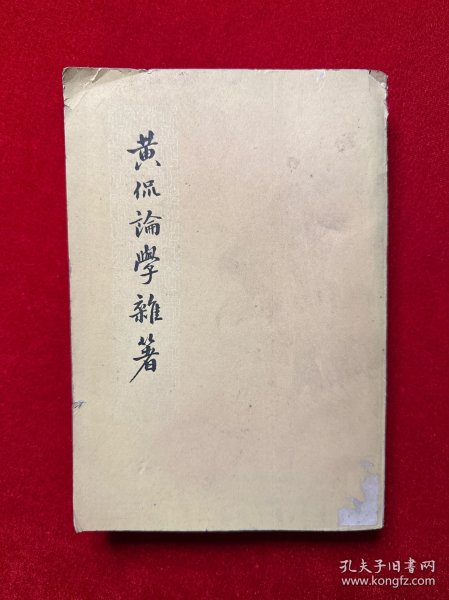 黄侃論學雜著
孔夫子旧书网
www.kongfz.com